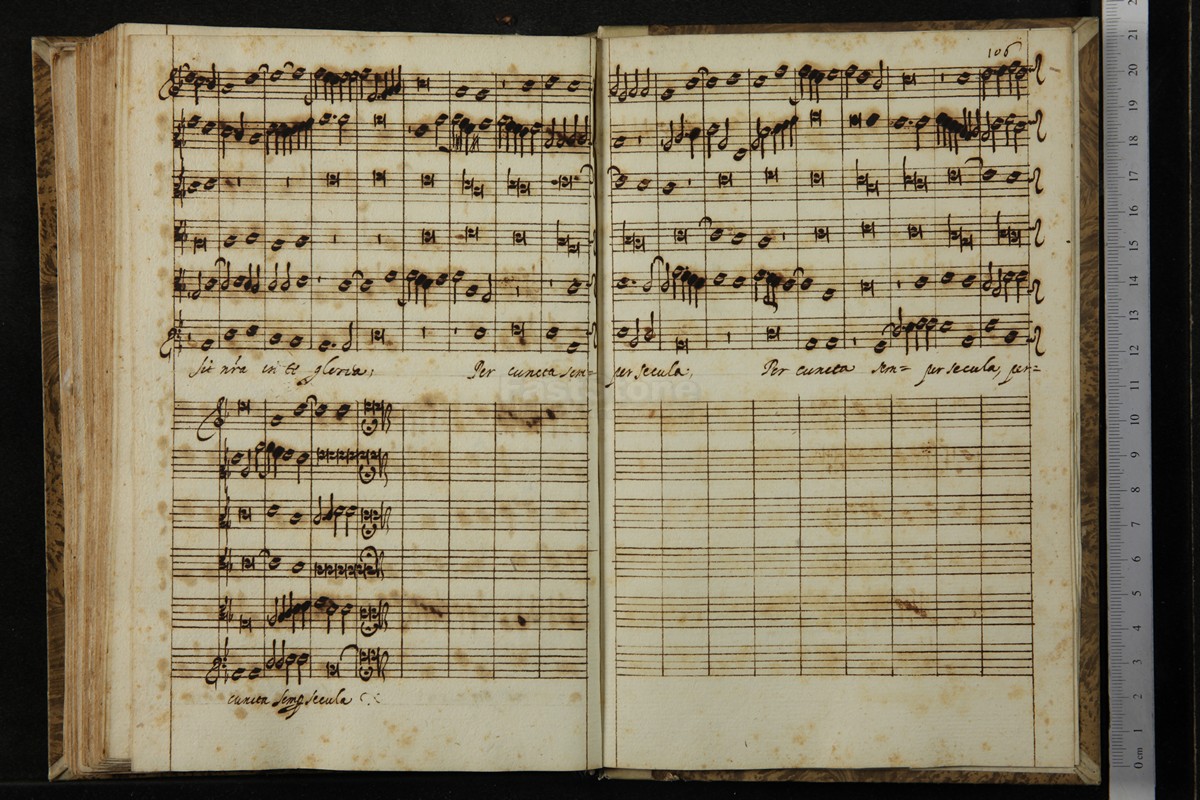 106
Sit nr̃a in te gloria; Per cuncta sem= per secula; Per cuncta sem= per secula, per=
cuncta semp secula
FastStone
0 cm 1 2 3 4 5 6 7 8 9 10 11 12 13 14 15 16 17 18 19 20 21